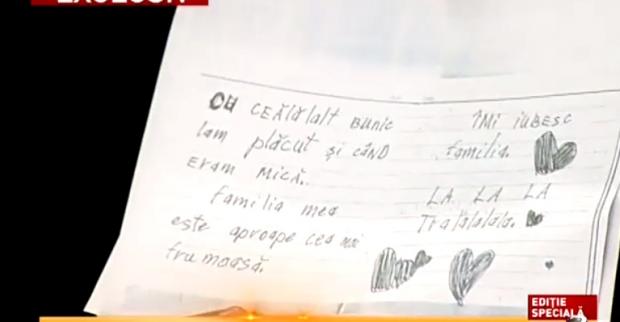 CU CEĂLălalt BUNIC
lam plăcut și cÂND
Eram MICĂ.
familia mea
este aproape cea mai
frumoasă.
ÎMI IUBESC
familia.
LA LA LA
Tralalalala.
EDIȚIE
SPECIALĂ